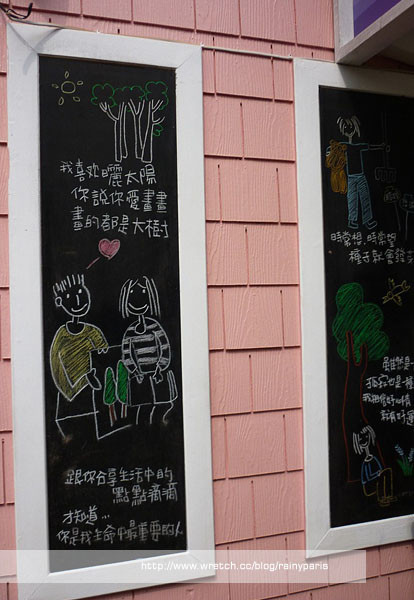 我喜欢曬太陽
你說你愛畫畫
畫的都是大樹
跟你分享生活中的
點點滴滴
才知道...
你是我生命中最重要的人
時常想,時常望
種子就會發
雖然是一
孤寂也是一種
http://www.wretch.cc/blog/rainyparis